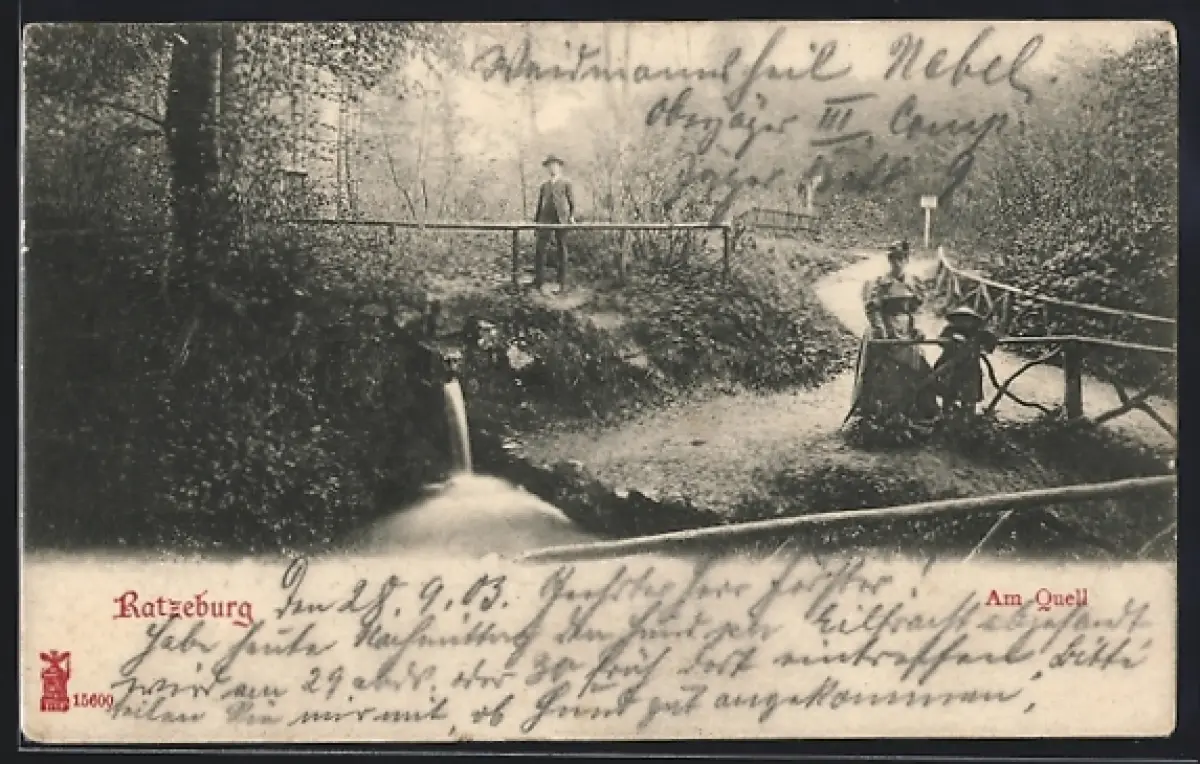 Weidmannsheil Nebel,
Oberjäger III Comp.
Jäger Batl. 9
Ratzeburg
Am Quell
Den 28. 9. 03. Geehrter Herr Förster!
Habe heute Nachmittag den Hund per Eilfracht abgesandt
wird am 29 abds. oder 30 früh dort eintreffen, Bitte
teilen Sie mir mit, ob Hund gut angekommen,
15600